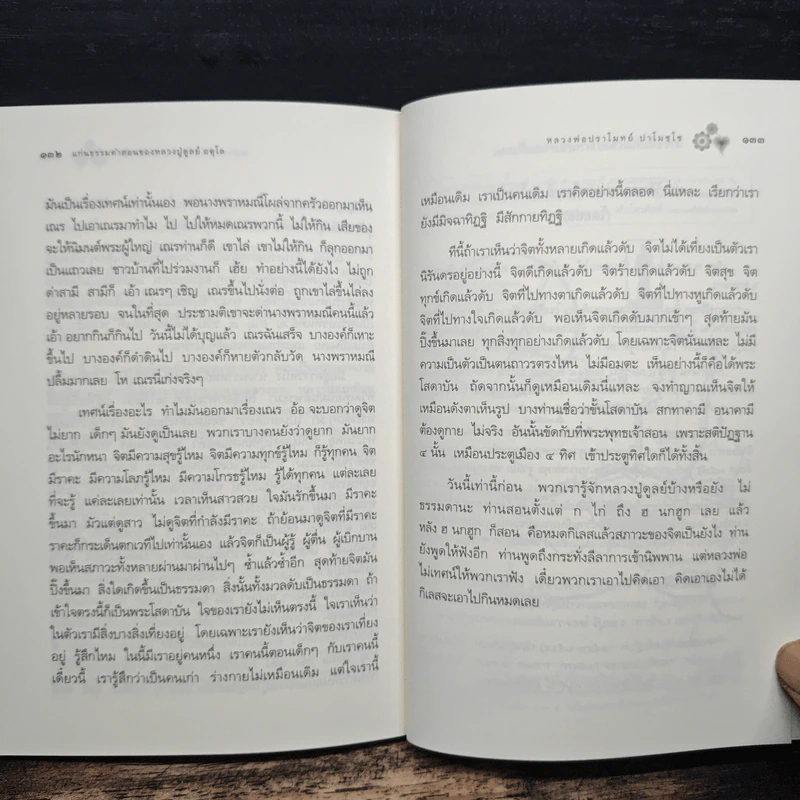 ๑๓๒ แก่นธรรมคำสอนของหลวงปู่ดูลย์ อตุโล
มันเป็นเรื่องเทศน์เท่านั้นเอง พอนางพราหมณีโผล่จากครัวออกมาเห็น
เณร ไปเอาเณรมาทำไม ไป ไปให้หมดเณรพวกนี้ ไม่ให้กิน เสียของ
จะให้นิมนต์พระผู้ใหญ่ เณรท่านก็ดี เขาไล่ เขาไม่ให้กิน ก็ลุกออกมา
เป็นแถวเลย ชาวบ้านที่ไปร่วมงานก็ เฮ้ย ทำอย่างนี้ได้ยังไง ไม่ถูก
ด่าสามี สามีก็ เอ้า เณรๆ เชิญ เณรขึ้นไปนั่งต่อ ถูกเขาไล่ขึ้นไล่ลง
อยู่หลายรอบ จนในที่สุด ประชามติเขาจะด่านางพราหมณีคนนี้แล้ว
เอ้า อยากกินก็กินไป วันนี้ไม่ได้บุญแล้ว เณรฉันเสร็จ บางองค์ก็เหาะ
ขึ้นไป บางองค์ก็ดำดินไป บางองค์ก็หายตัวกลับวัด นางพราหมณี
ปลื้มมากเลย โห เณรนี่เก่งจริงๆ
เทศน์เรื่องอะไร ทำไมมันออกมาเรื่องเณร อ้อ จะบอกว่าดูจิต
ไม่ยาก เด็กๆ มันยังดูเป็นเลย พวกเราบางคนยังว่าดูยาก มันยาก
อะไรนักหนา จิตมีความสุขรู้ไหม จิตมีความทุกข์รู้ไหม ก็รู้ทุกคน จิต
มีราคะ มีความโลภรู้ไหม มีความโกรธรู้ไหม รู้ได้ทุกคน แต่ละเลย
ที่จะรู้ แค่ละเลยเท่านั้น เวลาเห็นสาวสวย ใจมันรักขึ้นมา มีราคะ
ขึ้นมา มัวแต่ดูสาว ไม่ดูจิตที่กำลังมีราคะ ถ้าย้อนมาดูจิตที่มีราคะ
ราคะก็กระเด็นตกเวทีไปเท่านั้นเอง แล้วจิตก็เป็นผู้รู้ ผู้ตื่น ผู้เบิกบาน
พอเห็นสภาวะทั้งหลายผ่านมาผ่านไปๆ ซ้ำแล้วซ้ำอีก สุดท้ายจิตมัน
ปิ๊งขึ้นมา สิ่งใดเกิดขึ้นเป็นธรรมดา สิ่งนั้นทั้งมวลดับเป็นธรรมดา ถ้า
เข้าใจตรงนี้ก็เป็นพระโสดาบัน ใจของเรายังไม่เห็นตรงนี้ ใจเราเห็นว่า
ในตัวเรามีสิ่งบางสิ่งเที่ยงอยู่ โดยเฉพาะเรายังเห็นว่าจิตของเราเที่ยง
อยู่ รู้สึกไหม ในนี้มีเราอยู่คนหนึ่ง เราคนนี้ตอนเด็กๆ กับเราคนนี้
เดี๋ยวนี้ เรารู้สึกว่าเป็นคนเก่า ร่างกายไม่เหมือนเดิม แต่ใจเรานี้
หลวงพ่อปราโมทย์ ปาโมชฺโช ๑๓๓
เหมือนเดิม เราเป็นคนเดิม เราคิดอย่างนี้ตลอด นี่แหละ เรียกว่าเรา
ยังมีมิจฉาทิฏฐิ มีสักกายทิฏฐิ
ทีนี้ถ้าเราเห็นว่าจิตทั้งหลายเกิดแล้วดับ จิตไม่ได้เที่ยงเป็นตัวเรา
นิรันดรอยู่อย่างนี้ จิตดีเกิดแล้วดับ จิตร้ายเกิดแล้วดับ จิตสุข จิต
ทุกข์เกิดแล้วดับ จิตที่ไปทางตาเกิดแล้วดับ จิตที่ไปทางหูเกิดแล้วดับ
จิตที่ไปทางใจเกิดแล้วดับ พอเห็นจิตเกิดดับมากเข้าๆ สุดท้ายมัน
ปิ๊งขึ้นมาเลย ทุกสิ่งทุกอย่างเกิดแล้วดับ โดยเฉพาะจิตนั่นแหละ ไม่มี
ความเป็นตัวเป็นตนถาวรตรงไหน ไม่มีอมตะ เห็นอย่างนี้ก็คือได้พระ
โสดาบัน ถัดจากนั้นก็ดูเหมือนเดิมนี่แหละ จงทำญาณเห็นจิตให้
เหมือนดังตาเห็นรูป บางท่านเชื่อว่าขั้นโสดาบัน สกทาคามี อนาคามี
ต้องดูกาย ไม่จริง อันนั้นขัดกับที่พระพุทธเจ้าสอน เพราะสติปัฏฐาน
๔ นั้น เหมือนประตูเมือง ๔ ทิศ เข้าประตูทิศใดก็ได้ทั้งสิ้น
วันนี้เท่านี้ก่อน พวกเรารู้จักหลวงปู่ดูลย์บ้างหรือยัง ไม่
ธรรมดานะ ท่านสอนตั้งแต่ ก ไก่ ถึง ฮ นกฮูก เลย แล้ว
หลัง ฮ นกฮูก ก็สอน คือหมดกิเลสแล้วสภาวะของจิตเป็นยังไง ท่าน
ยังพูดให้ฟังอีก ท่านพูดถึงกระทั่งลีลาการเข้านิพพาน แต่หลวงพ่อ
ไม่เทศน์ให้พวกเราฟัง เดี๋ยวพวกเราเอาไปคิดเอา คิดเอาเองไม่ได้
กิเลสจะเอาไปกินหมดเลย